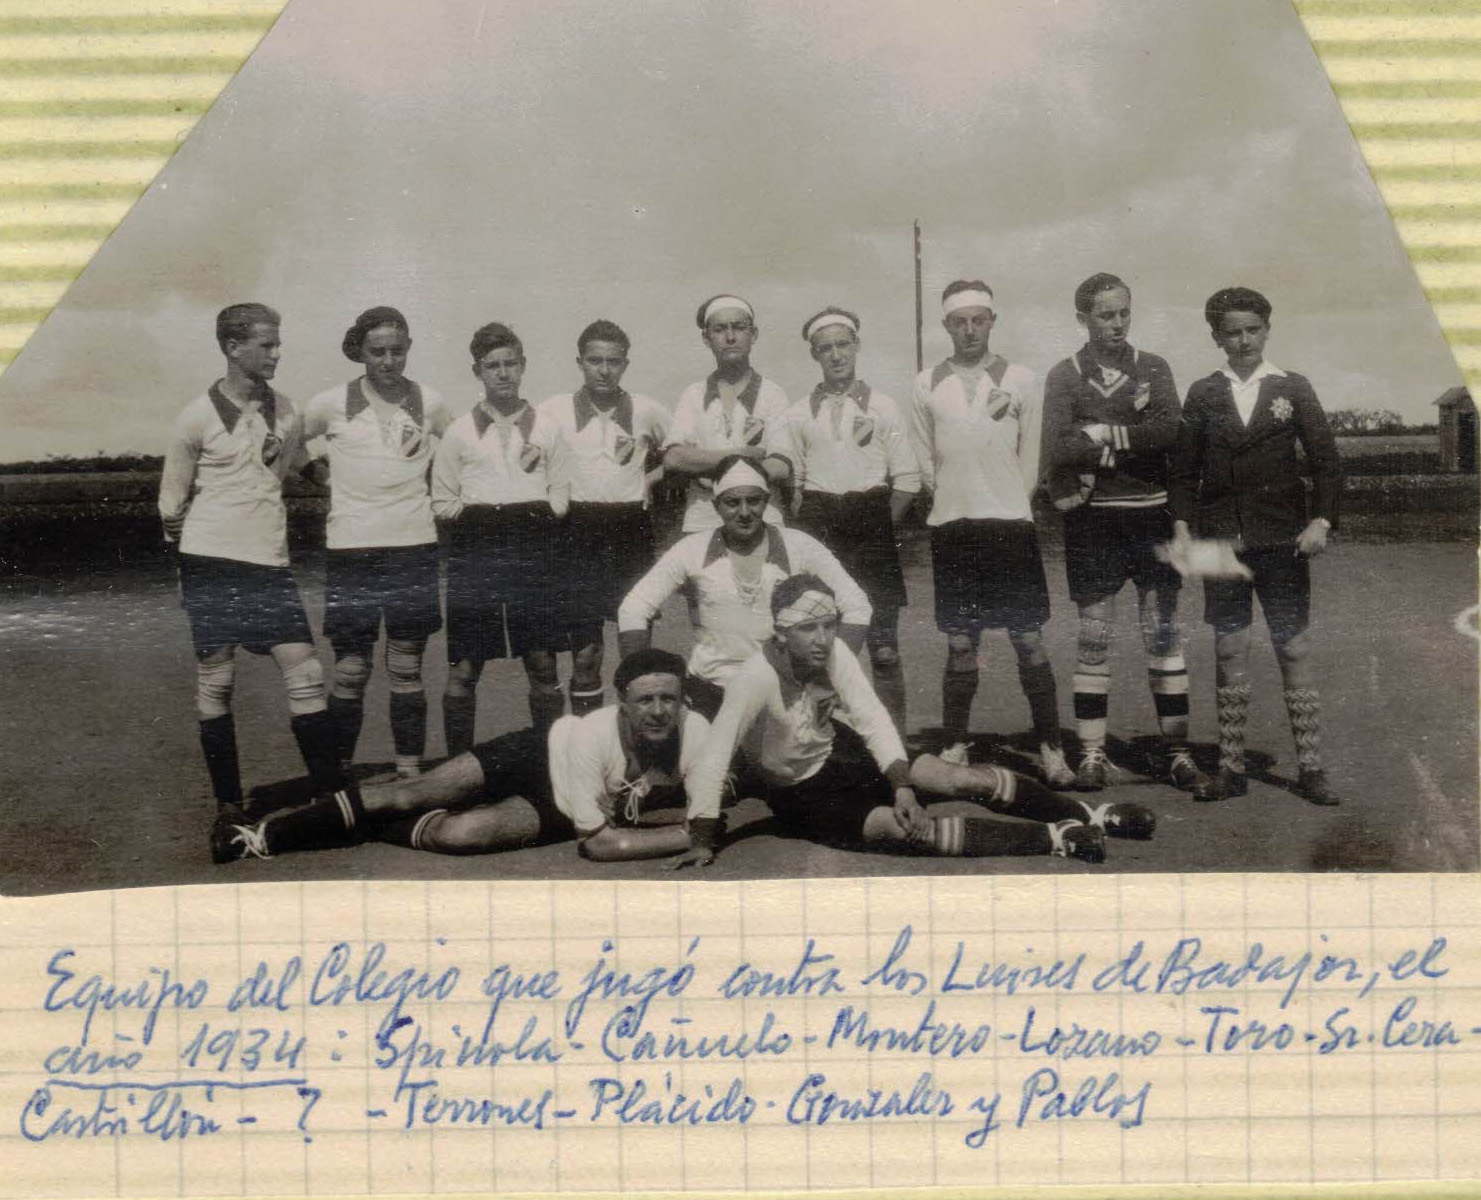 Equipo del Colegio que jugó contra los Luises de Badajoz, el
año 1934: Spínola - Cañuelo - Montero - Lozano - Toro - Sr. Cera -
Castrillón - ? - Terrones - Plácido - Gonzalez y Pablos